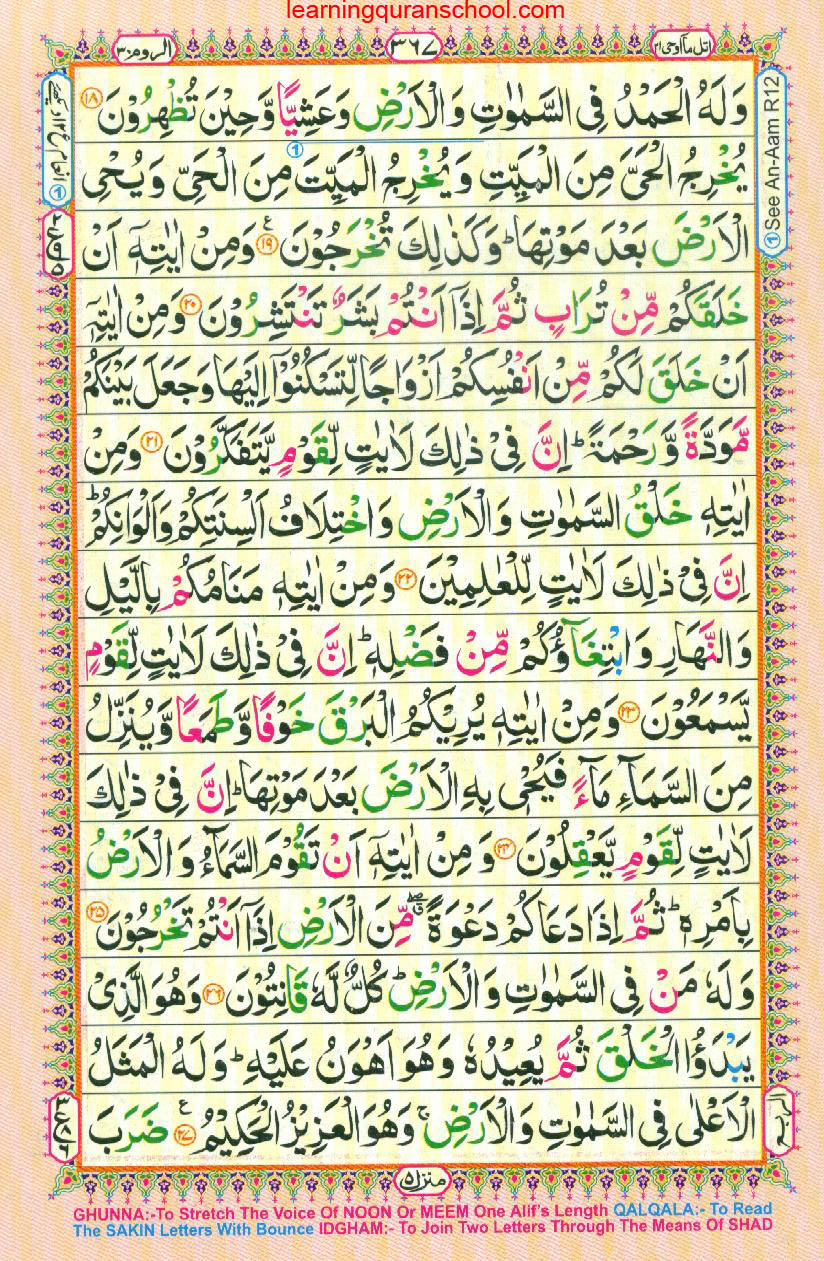 learningquranschool.com
اتل ما اوحی ۲۱
۳۶۷
الروم ۳۰
وَلَهُ الْحَمْدُ فِی السَّمٰوٰتِ وَالْاَرْضِ وَعَشِیًّا وَّحِیْنَ تُظْهِرُوْنَ ۱۸
یُخْرِجُ الْحَیَّ مِنَ الْمَیِّتِ وَیُخْرِجُ الْمَیِّتَ مِنَ الْحَیِّ وَیُحْیِ
الْاَرْضَ بَعْدَ مَوْتِهَا ؕ وَكَذٰلِكَ تُخْرَجُوْنَ ۱۹ ع وَمِنْ اٰیٰتِهٖۤ اَنْ
خَلَقَكُمْ مِّنْ تُرَابٍ ثُمَّ اِذَاۤ اَنْتُمْ بَشَرٌ تَنْتَشِرُوْنَ ۲۰ وَمِنْ اٰیٰتِهٖۤ
اَنْ خَلَقَ لَكُمْ مِّنْ اَنْفُسِكُمْ اَزْوَاجًا لِّتَسْكُنُوْۤا اِلَیْهَا وَجَعَلَ بَیْنَكُمْ
مَّوَدَّةً وَّرَحْمَةً ؕ اِنَّ فِیْ ذٰلِكَ لَاٰیٰتٍ لِّقَوْمٍ یَّتَفَكَّرُوْنَ ۲۱ وَمِنْ
اٰیٰتِهٖ خَلْقُ السَّمٰوٰتِ وَالْاَرْضِ وَاخْتِلَافُ اَلْسِنَتِكُمْ وَاَلْوَانِكُمْ ؕ
اِنَّ فِیْ ذٰلِكَ لَاٰیٰتٍ لِّلْعٰلِمِیْنَ ۲۲ وَمِنْ اٰیٰتِهٖ مَنَامُكُمْ بِالَّیْلِ
وَالنَّهَارِ وَابْتِغَآؤُكُمْ مِّنْ فَضْلِهٖ ؕ اِنَّ فِیْ ذٰلِكَ لَاٰیٰتٍ لِّقَوْمٍ
یَّسْمَعُوْنَ ۲۳ وَمِنْ اٰیٰتِهٖ یُرِیْكُمُ الْبَرْقَ خَوْفًا وَّطَمَعًا وَّیُنَزِّلُ
مِنَ السَّمَآءِ مَآءً فَیُحْیٖ بِهِ الْاَرْضَ بَعْدَ مَوْتِهَا ؕ اِنَّ فِیْ ذٰلِكَ
لَاٰیٰتٍ لِّقَوْمٍ یَّعْقِلُوْنَ ۲۴ وَمِنْ اٰیٰتِهٖۤ اَنْ تَقُوْمَ السَّمَآءُ وَالْاَرْضُ
بِاَمْرِهٖ ؕ ثُمَّ اِذَا دَعَاكُمْ دَعْوَةً ۖ مِّنَ الْاَرْضِ اِذَاۤ اَنْتُمْ تَخْرُجُوْنَ ۲۵
وَلَهٗ مَنْ فِی السَّمٰوٰتِ وَالْاَرْضِ ؕ كُلٌّ لَّهٗ قَانِتُوْنَ ۲۶ وَهُوَ الَّذِیْ
یَبْدَؤُا الْخَلْقَ ثُمَّ یُعِیْدُهٗ وَهُوَ اَهْوَنُ عَلَیْهِ ؕ وَلَهُ الْمَثَلُ
الْاَعْلٰی فِی السَّمٰوٰتِ وَالْاَرْضِ ۚ وَهُوَ الْعَزِیْزُ الْحَكِیْمُ ۲۷ ع ضَرَبَ
① See An-Aam R12
منزل ۵
GHUNNA:-To Stretch The Voice Of NOON Or MEEM One Alif's Length QALQALA:- To Read
The SAKIN Letters With Bounce IDGHAM:- To Join Two Letters Through The Means Of SHAD